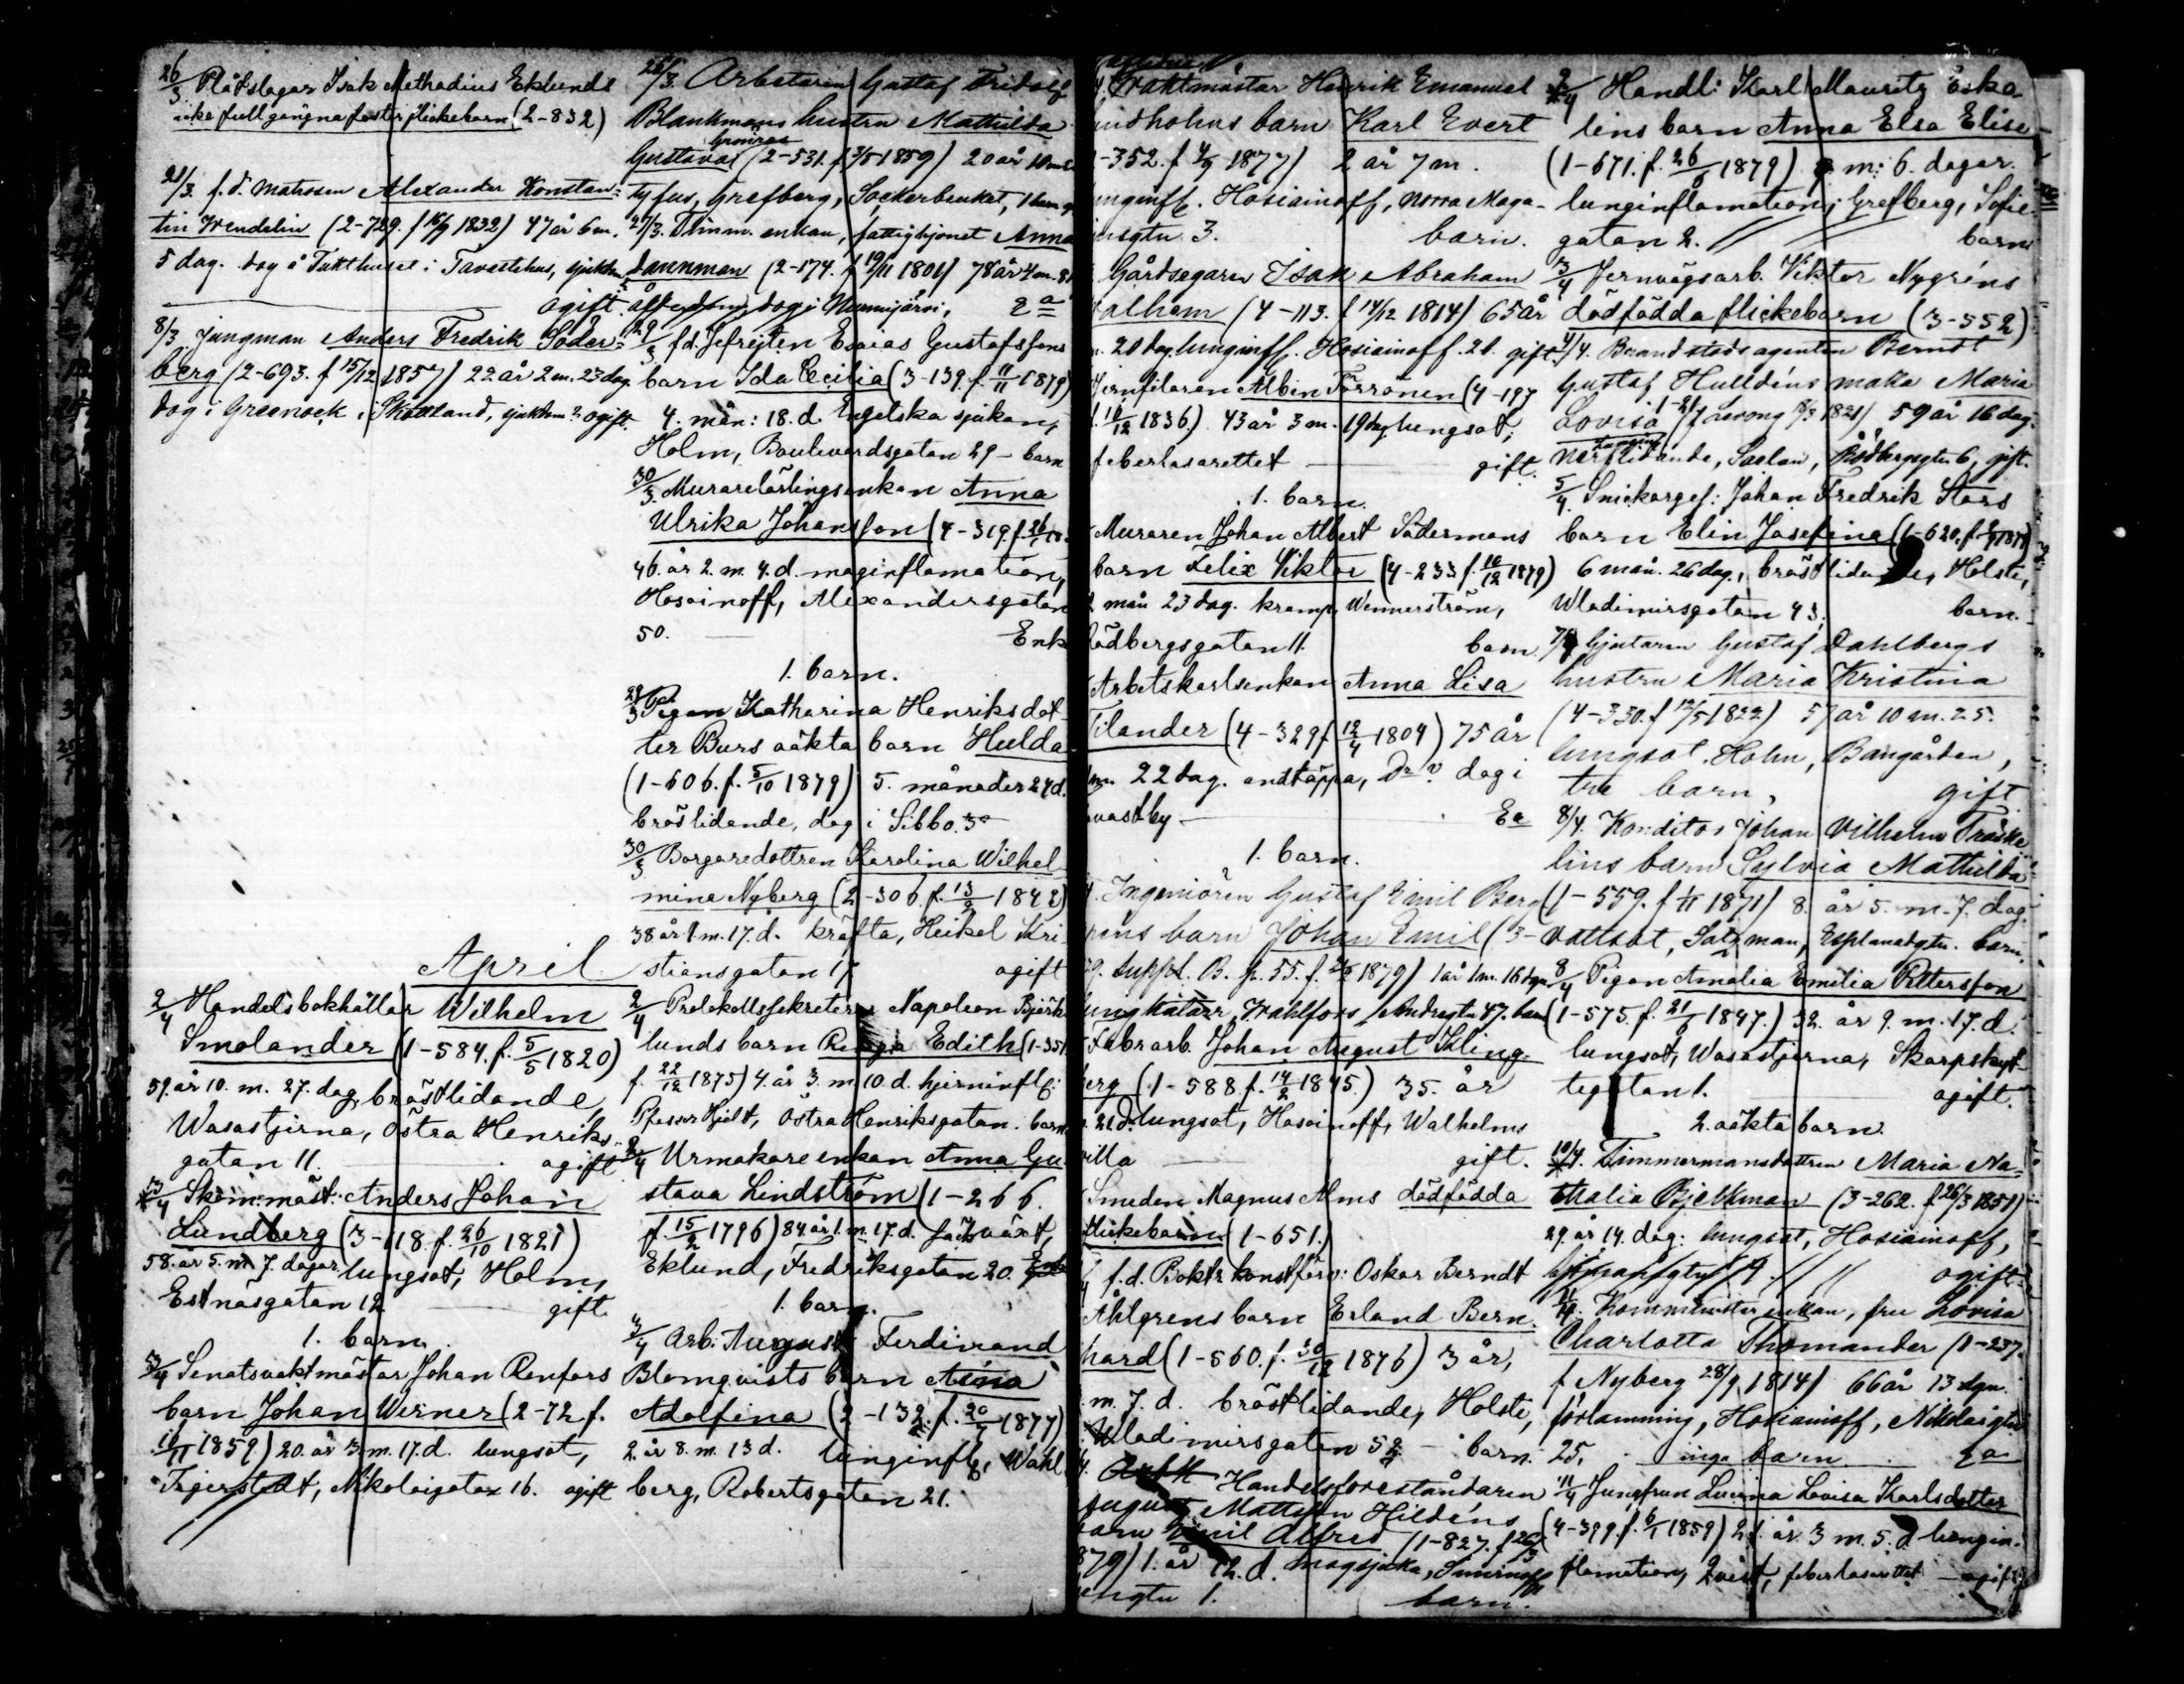 26/3 Plåtslagar Isak Methodius Eklunds
icke fullgångna foster flickebarn (2-832)
21/3. f.d. Matrosen Alexander Konstan-
tin Wendelin (2-729. f 16/9 1832) 47 år 6 m.
5 dag. dog å Tukthuset i Tavastehus, sjukdm?
ogift.
8/3 jungman Anders Fredrik Söder-
berg (2-693. f 15/12 1857) 22 år 2 m. 23 dag.
dog i Greenock i Skottland, sjukdm? ogift.
April
2/4 Handelsbokhållar Wilhelm
Smolander (1-584. f. 5/5 1820)
59. år 10. m. 27. dag, bröstlidande,
Wasastjerna, Östra Henriks-
gatan 11. ogift
Skom:mäst: Anders Johan
Lundberg (3-118. f. 26/10 1821)
58. år 5. m 7. dagar lungsot, Holm,
Estnäsgatan 12. gift
1. barn.
3/4 Senatsvaktmästar Johan Renfors
barn Johan Werner (2-72 f.
16/11 1859) 20. år 3 m. 17. d. lungsot,
Tigerstedt, Nikolaigatan 16. ogift
26/3. Arbetaren Gustaf Fridolf
Blankmans hustru Mathilda
Gustava (2-531. f 3/5 1859) 20 år 10 m
tyfus, Grefberg, Sockerbruket, 1 barn
27/3. Timm. enkan, fattighjonet Anna
Dannman (2-174. f 19/11 1801) 78 år 4 m. 8
dog i Nummijärvi, Ea
29/3 fd. Jefrejten Esaias Gustafsfons
barn Ida Cecilia (3-139. f. 11/11 1879)
4. mån: 18. d. Engelska sjukan,
Holm, Boulevardsgatan 29 - barn
30/3. Murarelärlingsenkan Anna
Ulrika Johansson (4-319. f. 26/1 18
46. år 2. m. 4. d. maginflamation,
Hosainoff, Alexandersgatan
50. Enk
1. barn.
29/3 Pigan Katharina Henriksdot-
ter Burs oäkta barn Hulda
(1-606. f. 5/10 1879) 5. månader 24 d.
bröslidande, dog i Sibbo.
30/3 Borgaredottren Karolina Wilhel
mina Nyberg (2-306. f. 13/2 1842)
38 år 1 m. 17. d. kräfta, Heikel Kri-
stiansgatan 17 ogift
2/4 Protokollssekreter Napoleon Björk-
lunds barn Edith (1-351
f. 22/12 1875) 4. år 3. m 10. d. hjerninfl:
Pfessor Hjelt, Östra Henriksgatan. barn
2/4 Urmakare enkan Anna Gu-
stava Lindström (1-266.
f. 15/2 1796) 84 år 1. m. 17. d.
Eklund, Fredriksgatan 20.
1. barn.
3/4 Arb: August Ferdinand
Blomqvists barn Aina
Adolfina (2-132. f. 20/7 1877)
2. år 8. m. 13 d. lunginfl, Wahl
berg, Robertsgatan 21.
Waktmästar Henrik Emanuel
indholms barn Karl Evert
-352. f 4/9 1877) 2 år 7 m.
unginfl. Hosiainoff, Norra Maga-
insgtn 3. barn.
Gårdsegaren Isak Abraham
alham (4-113. f 14/12 1814) 65 år
20 dag. lunginfl. Hosiainoff. 21. gift.
Jernfilaren Albin Törrönen (4-197
f. 16/12 1836). 43 år 3 m. 19 dag lungsot,
feberlasarettet gift.
1. barn.
Muraren Johan Albert Södermans
barn Felix Viktor (4-233 f. 10/12 1879)
2 mån 23 dag. kramp, Wennerström,
Rödbergsgatan 11. barn
Arbetskarlsenkan Anna Lisa
Tilander (4-329 f 12/4 1804) 75 år
m. 22 dag. andtäppa, Dr? dog i
vastby Ea
1. barn.
Ingeniören Gustaf Emil Berg
réns barn Johan Emil (3-
29. suppl. B. p. 55. f. 1879) 1 år 1 m. 16 dgn.
lungkatarr, Wahlfors, Andregtn 47. barn
Fabr arb. Johan August Kling
berg (1-588 f. 14/2 1845.) 35. år
21 d. lungsot, Hosainoff, Walhelms
villa gift.
Smeden Magnus Alms dödfödda
flickebarn (1-651.)
f.d. Boktr konstförv: Oskar Berndt
Åhlgrens barn Erland Bern-
hard (1-560. f. 30/12 1876) 3 år,
m. 7. d. bröstlidande, Holste,
Wladimirsgatan 52 - barn.
Handelsföreståndaren
August Mattsson Hildéns
barn Emil Alfred (1-827. f 26/3
879) 1. år 12. d. magsjuka, Smirnoff
engtn 1. barn.
2/4 Handl: Karl Mauritz Eske
lins barn Anna Elsa Elise
(1-671. f. 26/ 1879) m: 6. dagar.
lunginflamation, Grefberg, Sofie-
gatan 2. barn
3/4 Jernvägsarb. Viktor Nygréns
dödfödda flickebarn (3-552)
4/4. Brandstodsagenten Berndt
Gustaf Hulldéns maka Maria
Lovisa (f Levong 1821) 59 år 16 dag.
lidande, Saelan, Rödbergsgtn 6, gift.
5/4. Snickarges: Johan Fredrik Stars
barn Elin Josefina (1-620. f. 1879)
6 mån. 26 dag., bröstlidande, Holste,
Wladimirsgatan 43, barn.
Gjutaren Gustaf Dahlbergs
hustru Maria Kristina
(4-330. f 12/5 1822) 57 år 10 m. 25.
lungsot. Holm, Bangården,
tre barn, gift
8/4. Konditor Johan Vilhelm Träske
lins barn Sylvia Mathilda
(1-559. f 1/11 1871) 8. år 5. m. 7. dag.
vattsot, Saltzman, Esplanadgtn. barn.
8/4 Pigan Amalia Emilia Pettersson
(1-575. f. 21/6 1847.) 32. år 9. m. 17. d.
lungsot, Wasastjerna, Skarpskyt-
tegatan 1. ogift.
2. oäkta barn.
10/4. Timmermansdottren Maria Na-
thalia Bjelkman (3-262. f 26/3 1851)
29. år 14. dag. lungsot, Hosiainoff,
ogift.
11/4. Komministerenkan, fru Lovisa
Charlotta Thomander (1-237.
f Nyberg 28/9 1814) 66 år 13 dgn.
förlamning, Hosiainoff, Nikolaigtn
25. inga barn Ea
11/4 Jungfrun Lovisa Karlsdotter
(4-399. f. 6/1 1859) 21. år. 3 m. 5. d lungin-
flamation, Qvist, feberlasarettet - ogift.